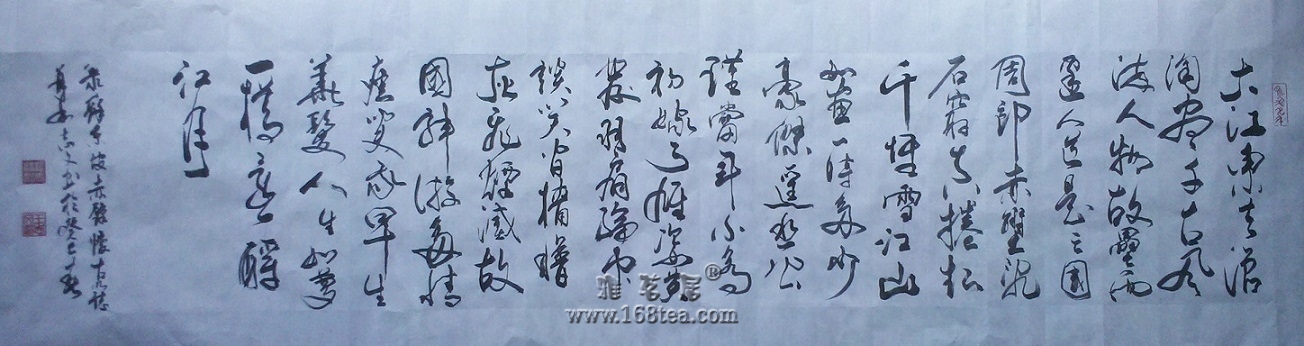 大江東去浪
淘盡千古風
流人物故壘西
邊人道是三國
周郎赤壁亂
石穿捲起
千堆雪江山
如畫一時多少
豪傑遙想公
瑾當年小喬
初嫁了雄姿英
發羽扇綸巾
談笑間檣櫓
灰飛煙滅故
國神游多情
應笑我早生
華髮人生如夢
一樽還酹
江月
錄蘇東坡赤壁懷古
志文書於癸巳秋
雅茗居®
www.168tea.com